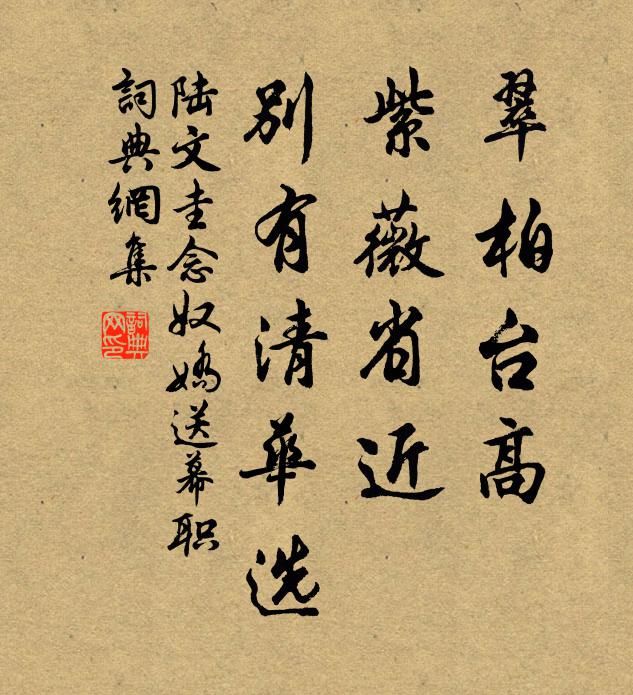 翠柏台高
紫薇省近
别有清華选
陆文圭念奴嬌送幕职
詞典網集
詞典网印